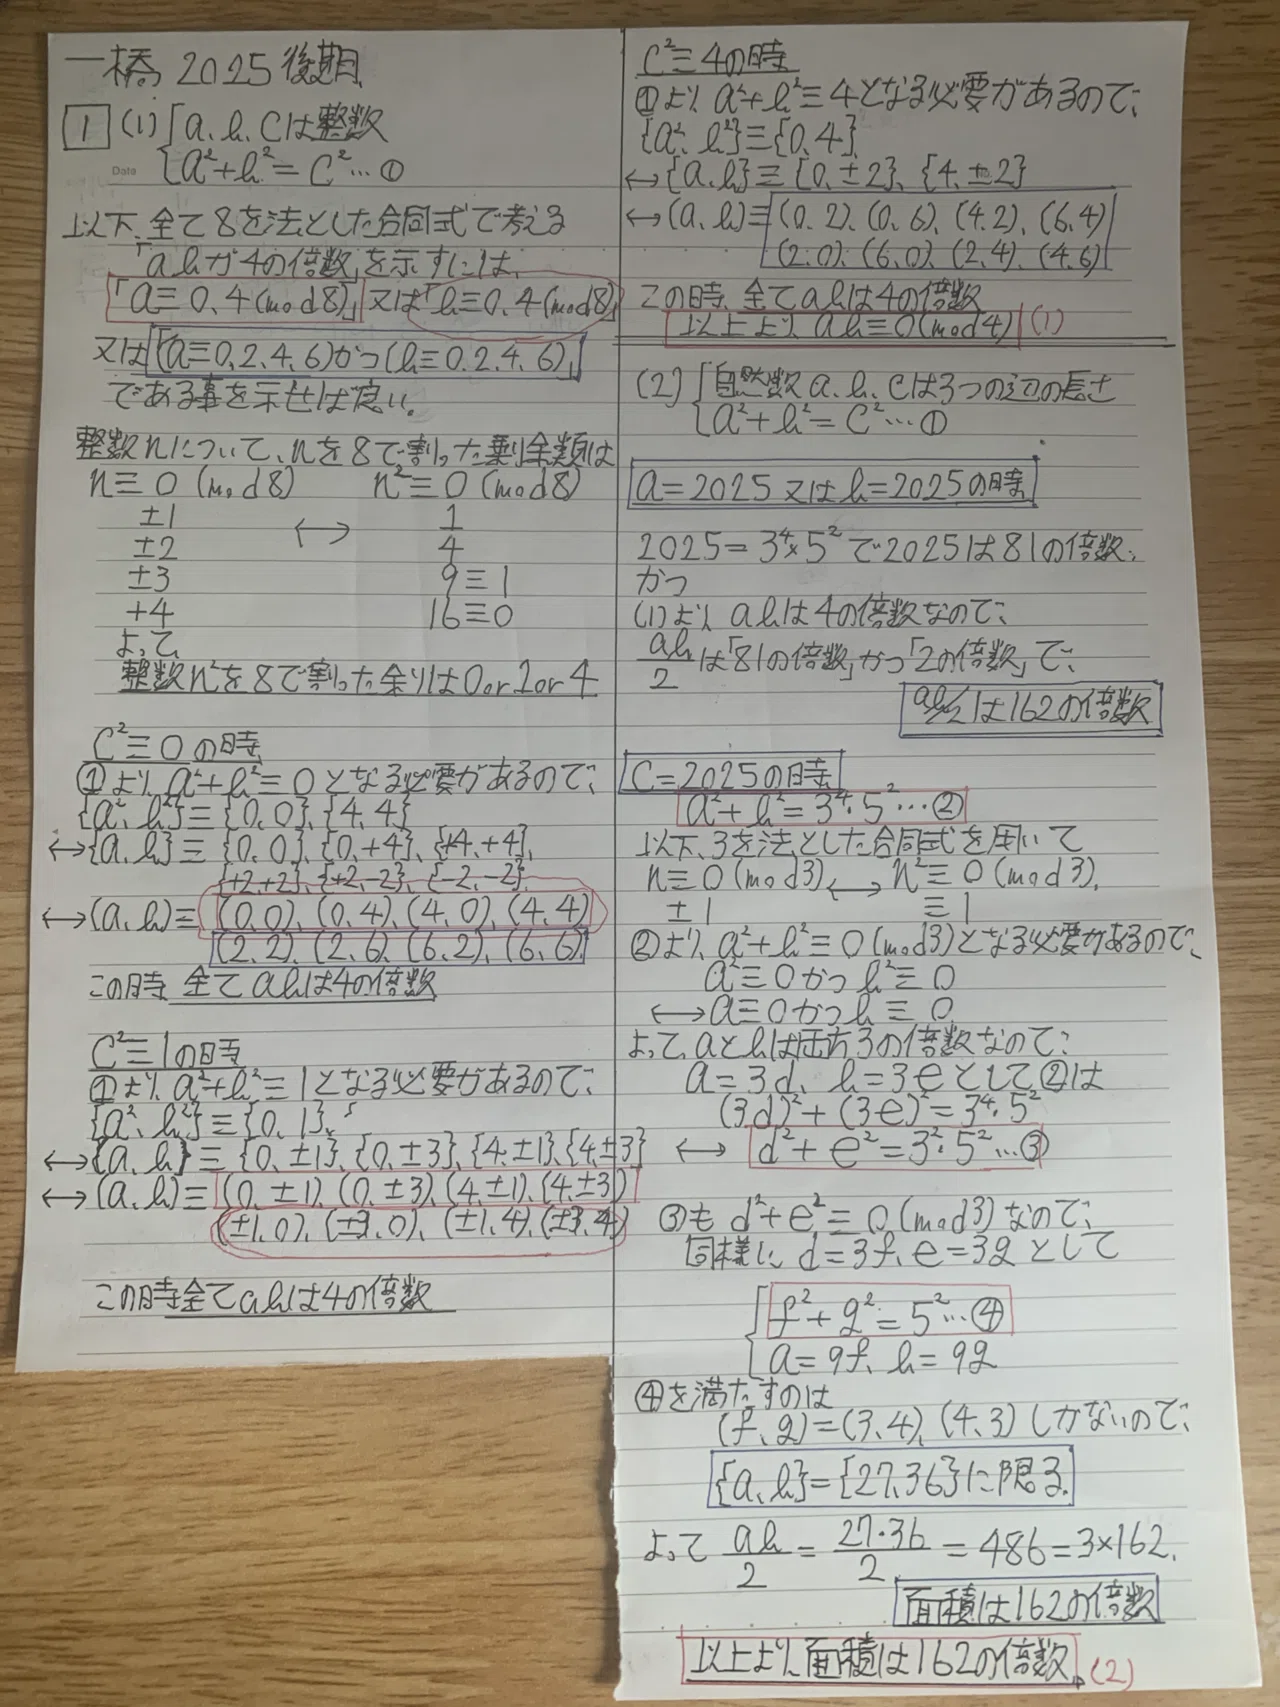 一橋 2025 後期
1 (1) { a, b, c は整数
a²+b²=c² …①
Date
以下、全て8を法とした合同式で考える
「abが4の倍数」を示すには、
「a≡0, 4 (mod8)」又は「b≡0, 4 (mod8)」
又は「(a≡0, 2, 4, 6)かつ(b≡0, 2, 4, 6)」
である事を示せば良い。
整数nについて、nを8で割った剰余類は
n≡0 (mod8) n²≡0 (mod8)
±1 ↔ 1
±2 4
±3 9≡1
+4 16≡0
よって、
整数n²を8で割った余りは0or1or4
c²≡0の時
①より、a²+b²≡0となる必要があるので、
{a², b²}≡{0, 0}, {4, 4}
↔{a, b}≡{0, 0}, {0, +4}, {+4, +4},
{+2, +2}, {+2, -2}, {-2, -2}
↔(a, b)≡(0, 0), (0, 4), (4, 0), (4, 4)
(2, 2), (2, 6), (6, 2), (6, 6)
この時、全てabは4の倍数
c²≡1の時
①より、a²+b²≡1となる必要があるので、
{a², b²}≡{0, 1},
↔{a, b}≡{0, ±1}, {0, ±3}, {4, ±1}, {4, ±3}
↔(a, b)≡(0, ±1), (0, ±3), (4, ±1), (4, ±3)
(±1, 0), (±3, 0), (±1, 4), (±3, 4)
この時全てabは4の倍数
c²≡4の時
①より a²+b²≡4となる必要があるので、
{a², b²}≡{0, 4}
↔{a, b}≡{0, ±2}, {4, ±2}
↔(a, b)≡(0, 2), (0, 6), (4, 2), (6, 4)
(2, 0), (6, 0), (2, 4), (4, 6)
この時、全てabは4の倍数
以上より ab≡0 (mod4) (1)
(2) { 自然数a, b, cは3つの辺の長さ
a²+b²=c² …①
a=2025 又は b=2025の時
2025=3⁴×5²で2025は81の倍数、
かつ
(1)より abは4の倍数なので、
ab/2は「81の倍数」かつ「2の倍数」で、
ab/2は162の倍数
c=2025の時
a²+b²=3⁴・5² …②
以下、3を法とした合同式を用いて
n≡0 (mod3) ↔ n²≡0 (mod3),
±1 ≡1
②より、a²+b²≡0 (mod3)となる必要があるので、
a²≡0かつb²≡0
↔a≡0かつb≡0
よって、aとbは両方3の倍数なので、
a=3d, b=3eとして②は
(3d)²+(3e)²=3⁴・5²
↔ d²+e²=3²・5² …③
③も d²+e²≡0 (mod3)なので、
同様に d=3f, e=3gとして
{ f²+g²=5² …④
a=9f, b=9g
④を満たすのは
(f, g)=(3, 4), (4, 3)しかないので、
{a, b}={27, 36}に限る。
よって ab/2=27・36/2=486=3×162.
面積は162の倍数
以上より、面積は162の倍数 (2)